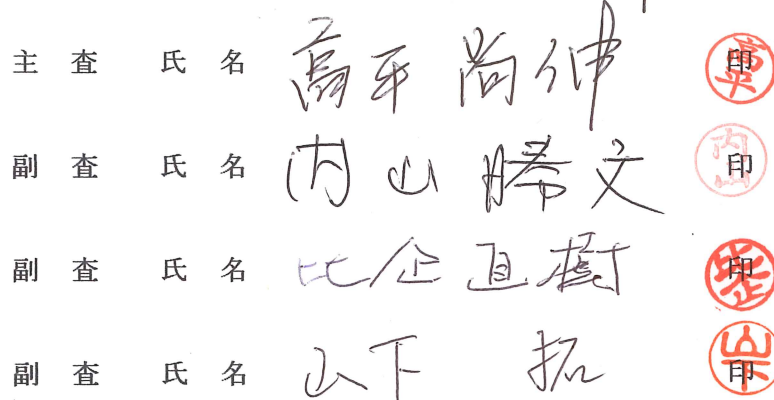 主査 氏名 高平 尚伸 印
副査 氏名 内山 勝文 印
副査 氏名 比企 直樹 印
副査 氏名 山下 拓 印